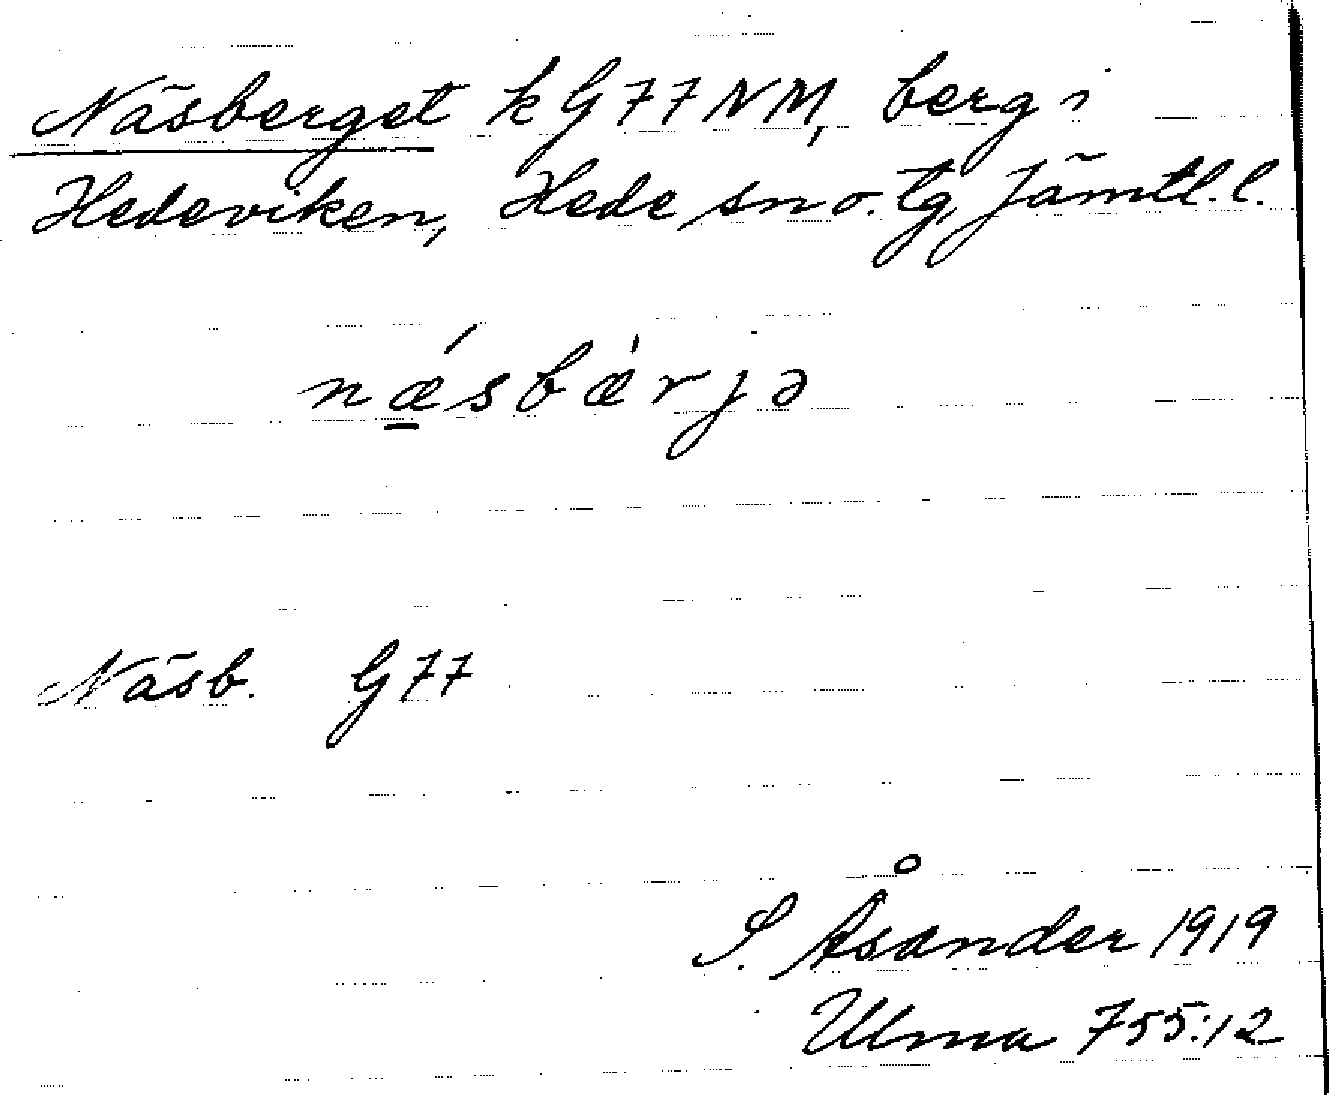 Näsberget k G77NM, berg i
Hedeviken, Hede sn o. tg, Jämtl. l.
nǽ̲sbæ̀rjə
Näsb. G77
S. Åsander 1919
Ulma 755:12